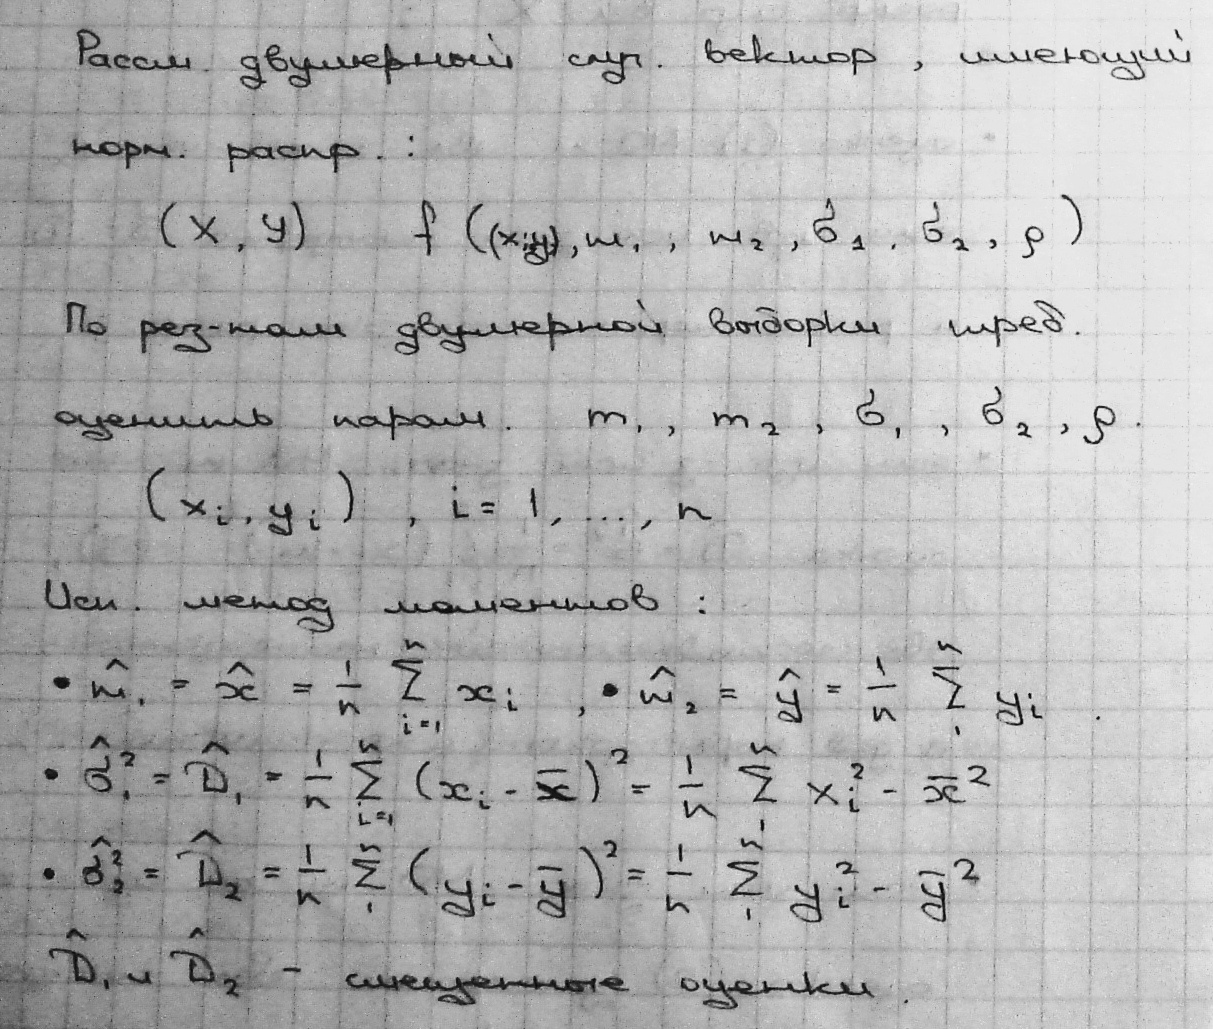 Рассм. двумерный случ. вектор, имеющий
норм. распр.:
(X, Y) f((x,y), m₁, m₂, σ₁, σ₂, ρ)
По рез-там двумерной выборки треб.
оценить парам. m₁, m₂, σ₁, σ₂, ρ.
(xᵢ, yᵢ), i = 1, ..., n
Исп. метод моментов:
• m̂₁ = x̂ = 1/n ∑ᵢ₌₁ⁿ xᵢ, • m̂₂ = ŷ = 1/n ∑₁ⁿ yᵢ.
• σ̂₁² = D̂₁ = 1/n ∑ᵢ₌₁ⁿ (xᵢ - x̄)² = 1/n ∑ⁿ xᵢ² - x̄²
• σ̂₂² = D̂₂ = 1/n ∑₁ⁿ (yᵢ - ȳ)² = 1/n ∑₁ⁿ yᵢ² - ȳ²
D̂₁ и D̂₂ - смещенные оценки.